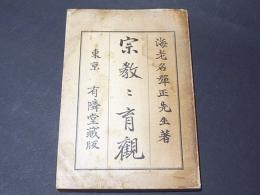 海老名彈正先生著
宗教々育觀
東京 有隣堂藏版